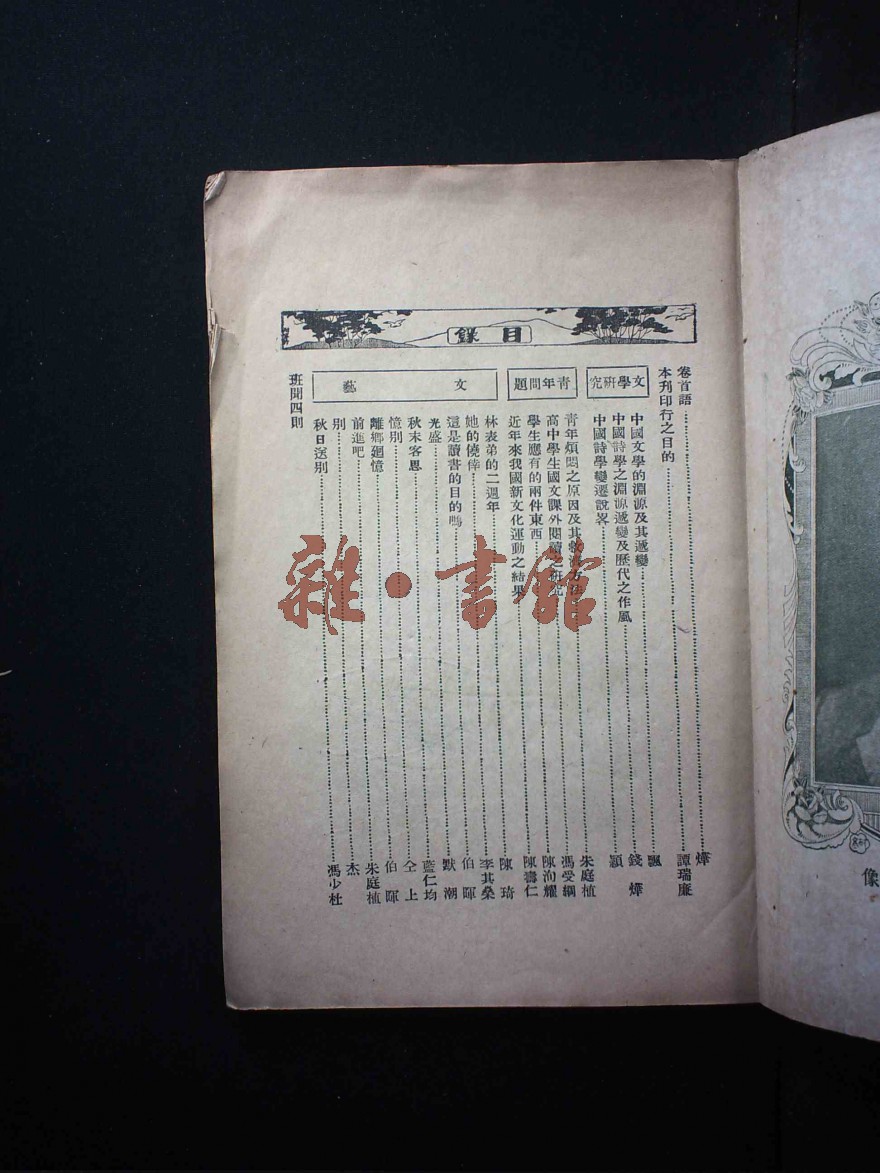 目錄
卷首語 燁
本刊印行之目的 譚瑞廉
文學研究
中國文學的淵源及其遞變 飄
中國詩學之淵源遞變及歷代之作風 錢燁
中國詩學變遷說畧 穎
青年問題
青年煩悶之原因及其救濟方法 朱庭植
高中學生國文課外閱讀之研究 馮受綱
學生應有的兩件東西 陳洵耀
近年來我國新文化運動之結果 陳壽仁
文藝
林表弟的二週年 陳琦
她的僥倖 李其燊
這是讀書的目的嗎 伯暉
光盛 默潮
秋末客思 藍仁均
憶別 仝上
離鄉廻憶 伯暉
前進吧 朱庭植
別 杰
秋日送別 馮少杜
班聞四則
雜·書館
像